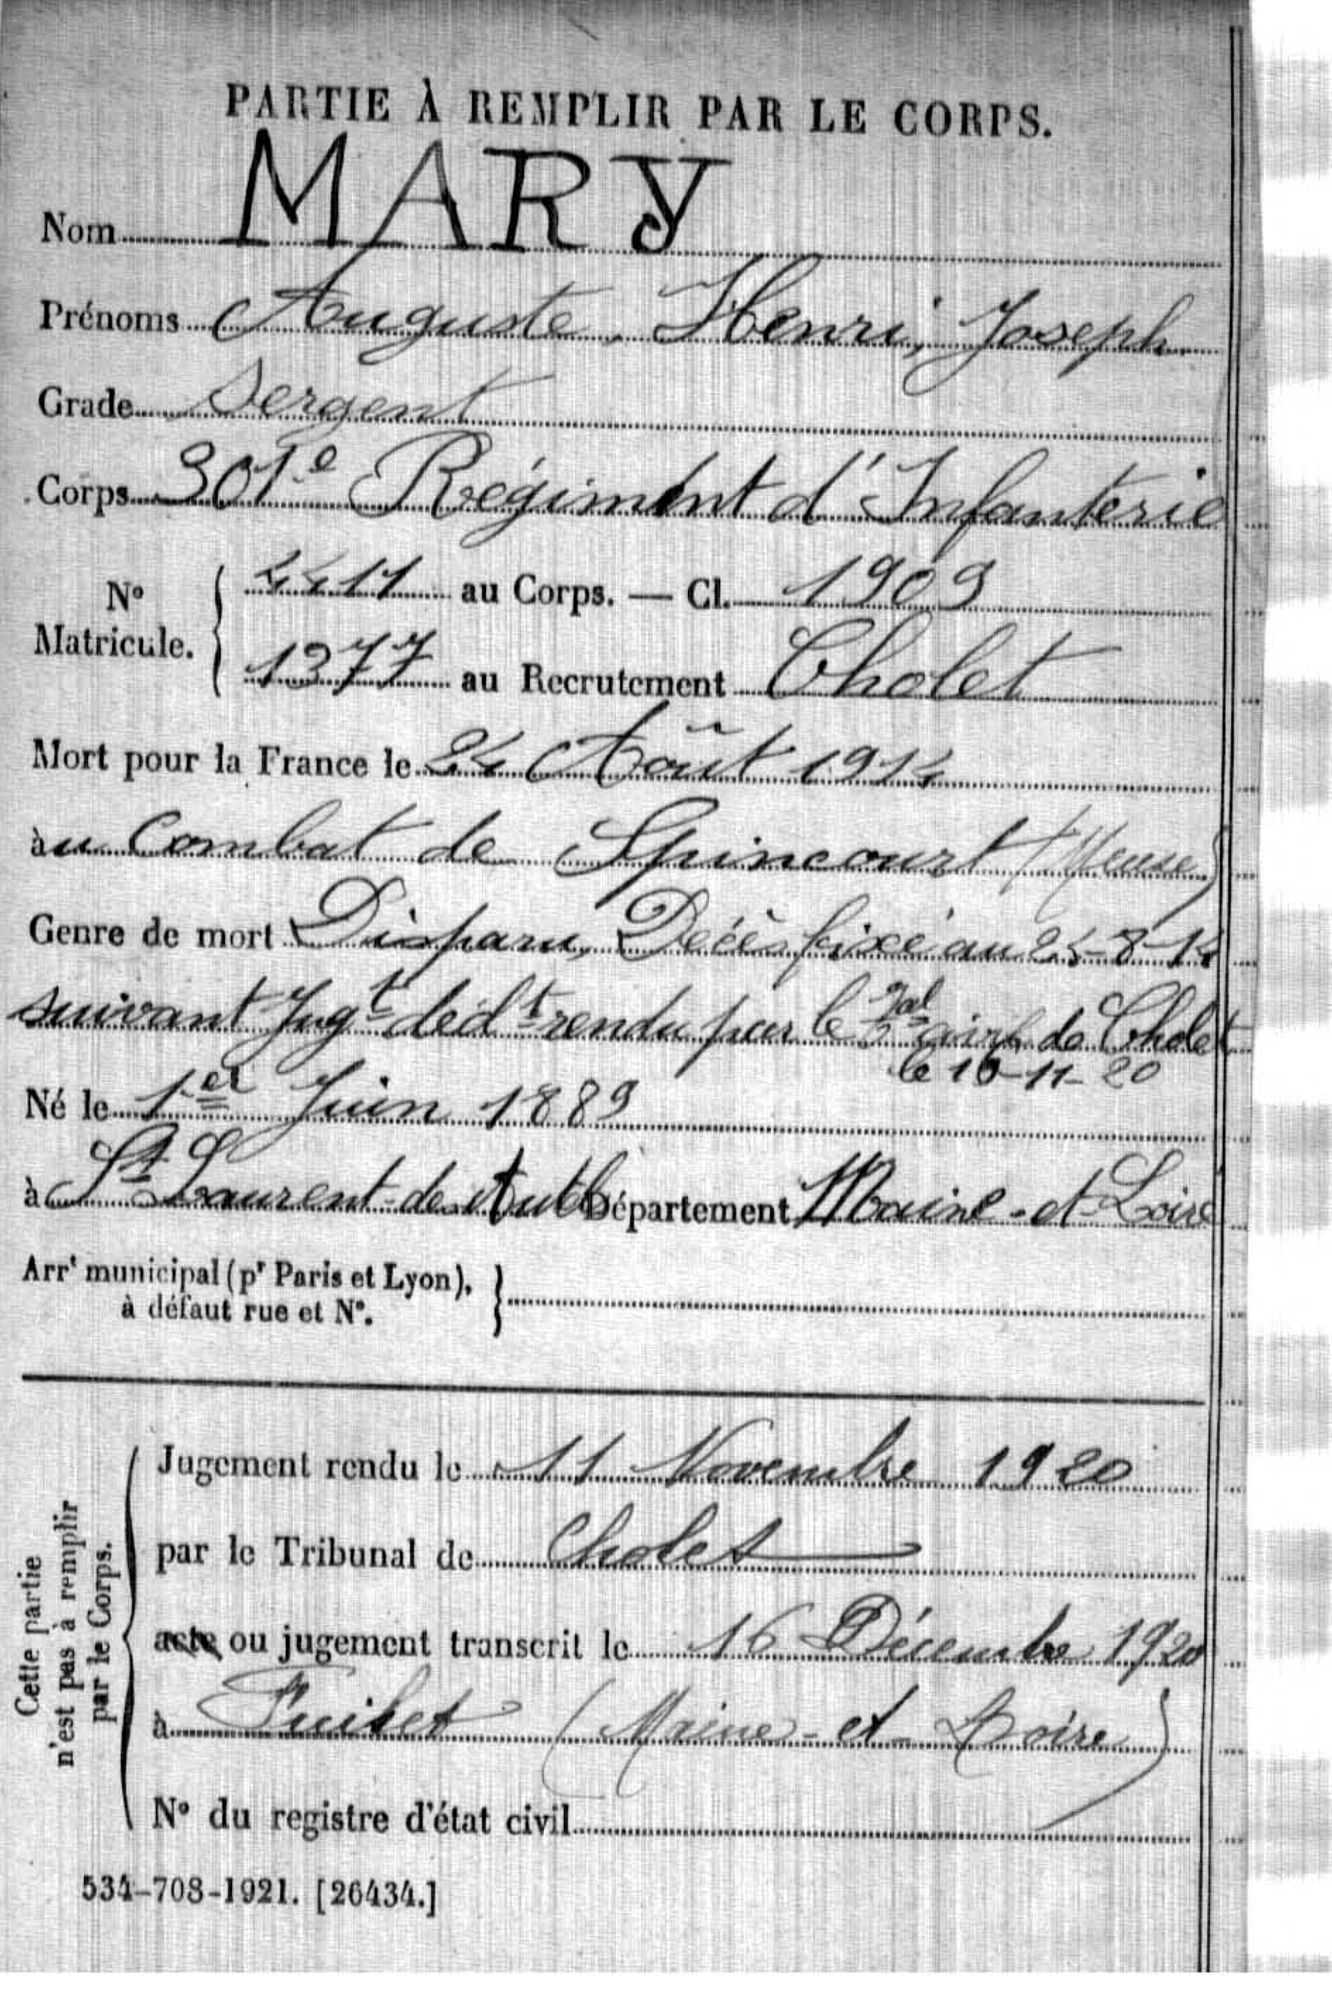 PARTIE À REMPLIR PAR LE CORPS.
Nom MARY
Prénoms Auguste, Henri, Joseph
Grade Sergent
Corps 301e Régiment d'Infanterie
N° Matricule. 4411 au Corps. — Cl. 1909
1377 au Recrutement Cholet
Mort pour la France le 24 Août 1914
au Combat de Spincourt (Meuse)
Genre de mort Disparu, Décès fixé au 24-8-14
suivant Jugt décl rendu par le Tal de Cholet
le 10-11-20
Né le 1er Juin 1889
à St Laurent-des-Autels Département Maine-et-Loire
Arrt municipal (pr Paris et Lyon),
à défaut rue et N°.
Cette partie
n'est pas à remplir
par le Corps.
Jugement rendu le 11 Novembre 1920
par le Tribunal de Cholet
acte ou jugement transcrit le 16 Décembre 1920
à (Maine-et-Loire)
N° du registre d'état civil
534-708-1921. [26434.]